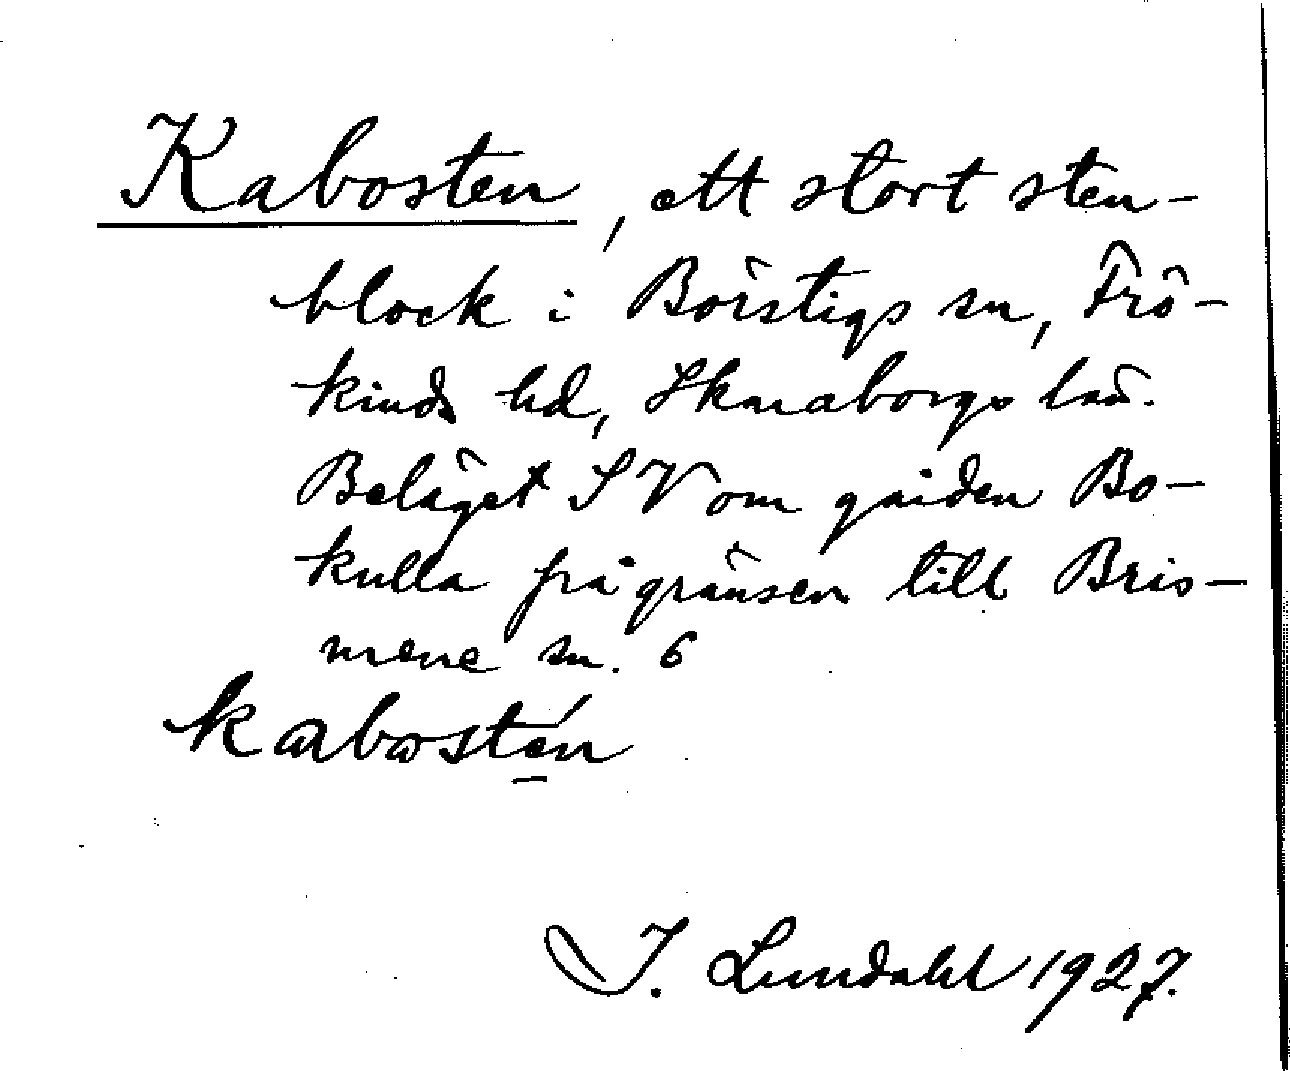 Kabosten, ett stort sten-
block i Börstigs sn, Frö-
kinds hd, Skaraborgs län.
Beläget SV om gården Bo-
kulla på gränsen till Bris-
mene sn. 6
kabostén
I. Lundahl 1927.